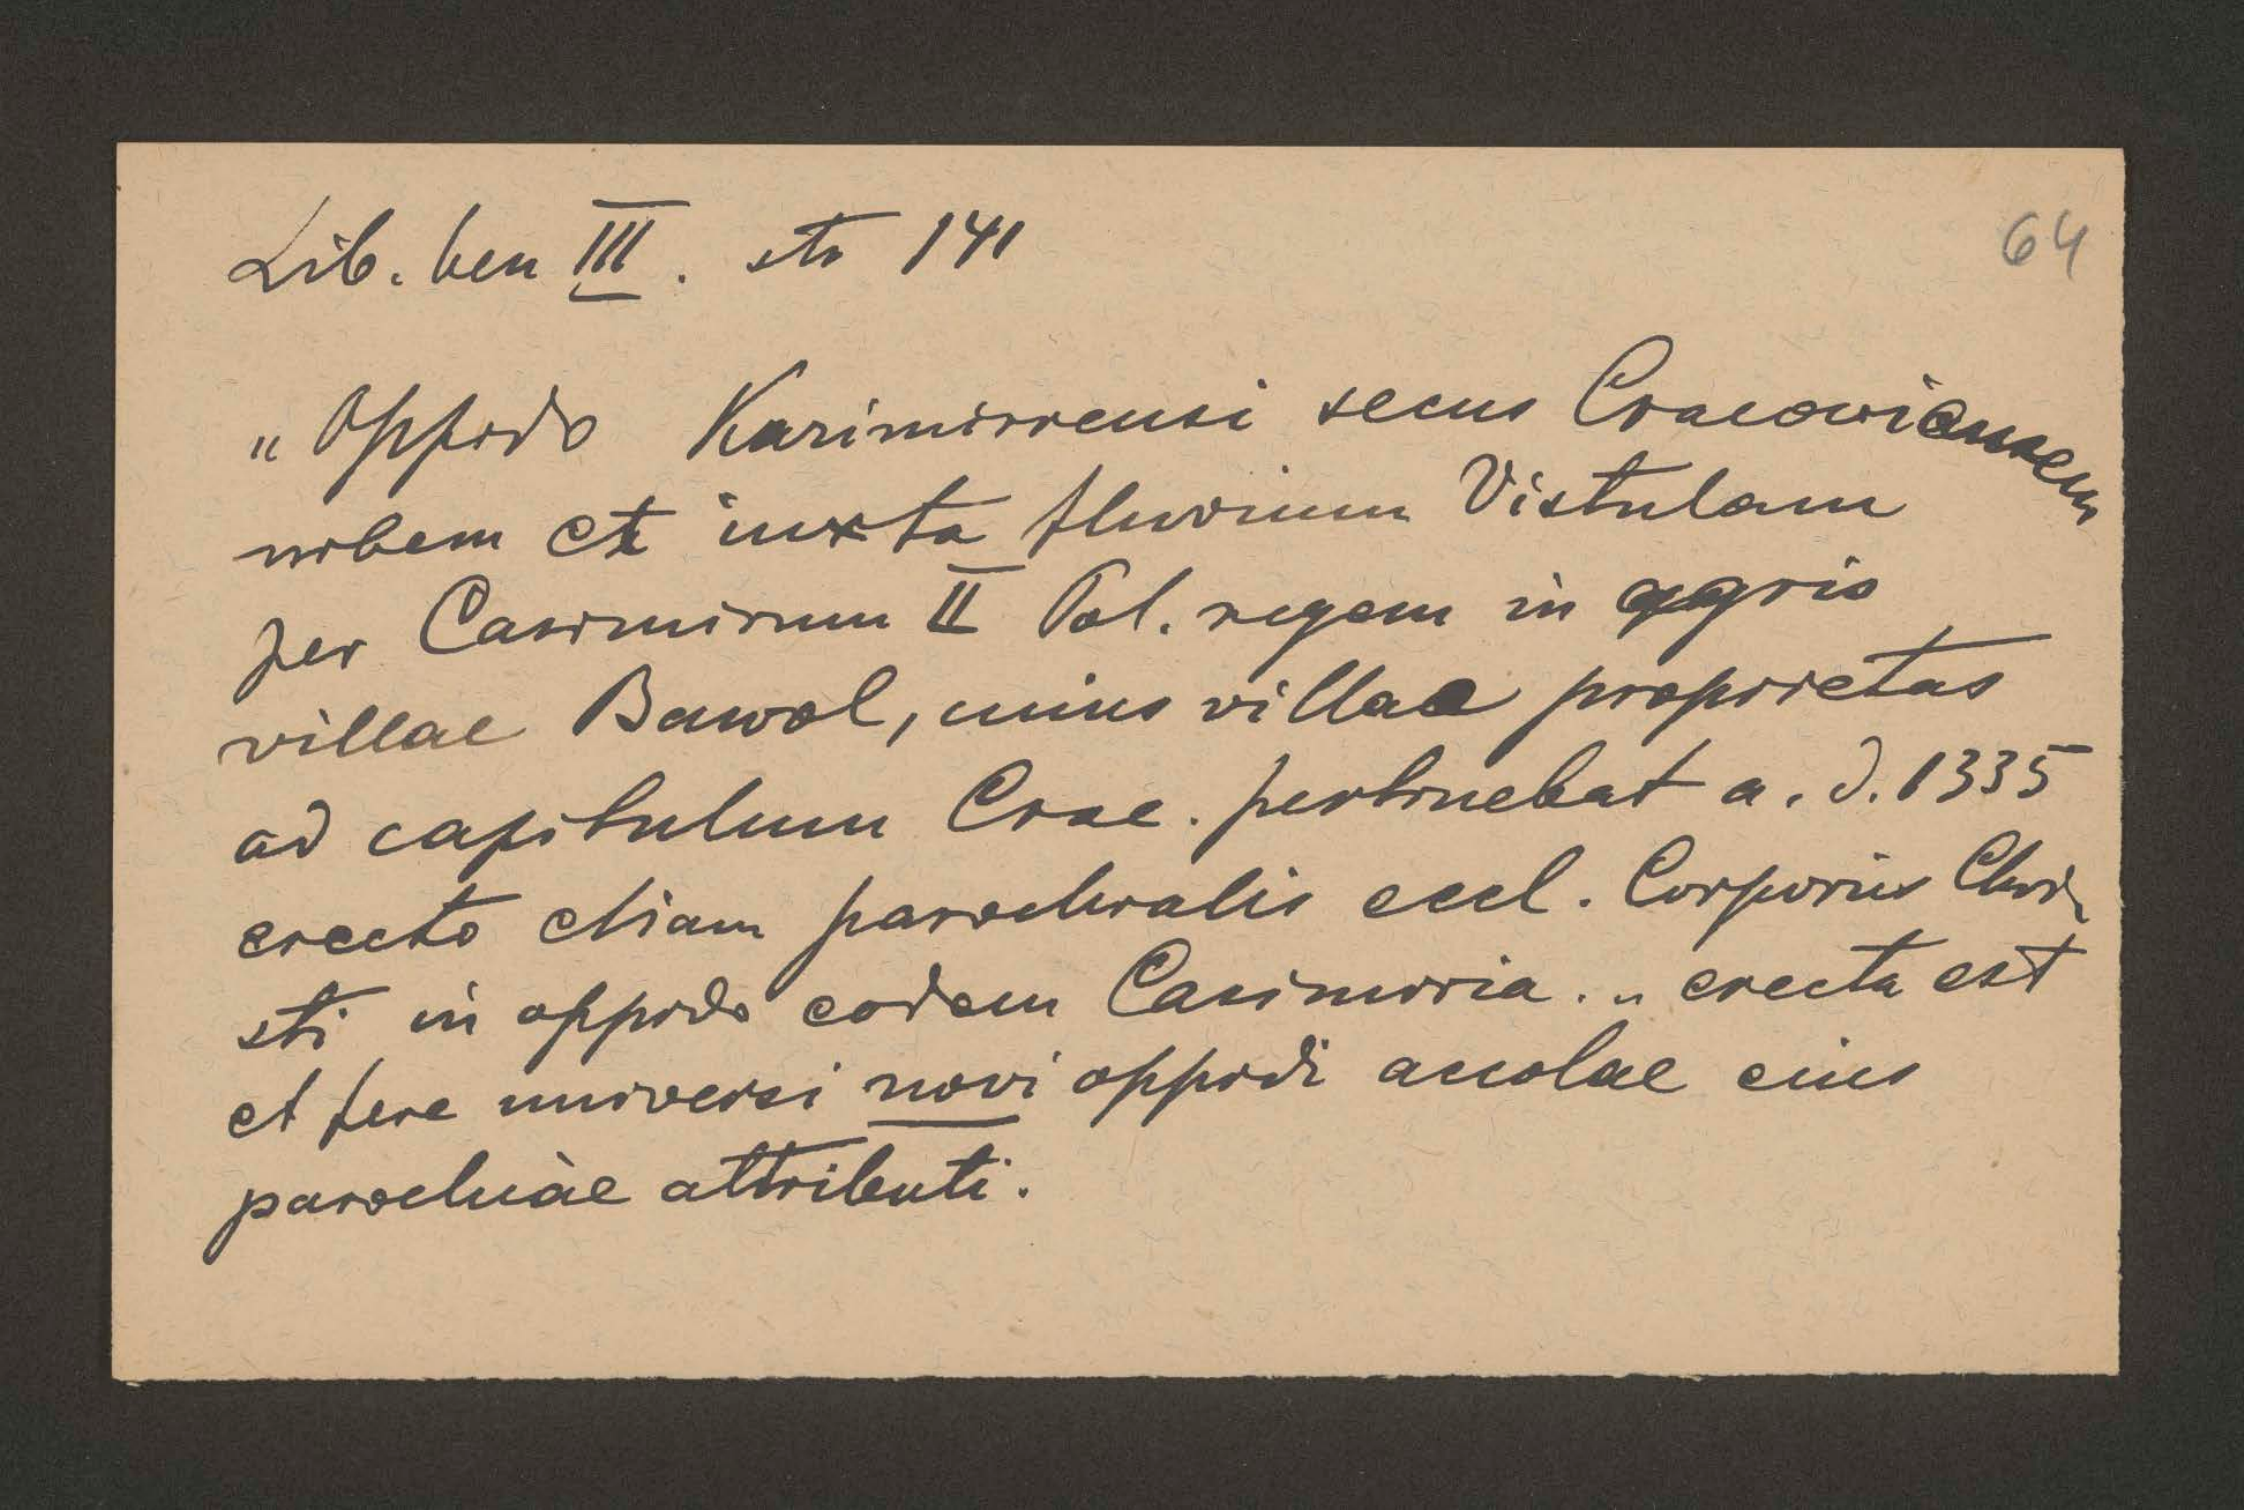 Lib. ben III. str 141
64
„Oppido Kazimirensi secus Cracoviensem
urbem et iuxta fluvium Vistulam
per Casimirum II Pol. regem in agris
villae Bawol, cuius villae proprietas
ad capitulum Crac. pertinebat a. d. 1335
erecto etiam parochialis eccl. Corporis Chri-
sti in oppido eodem Casimiria. „ erecta est
et fere universi novi oppidi accolae eius
parochiae attributi.